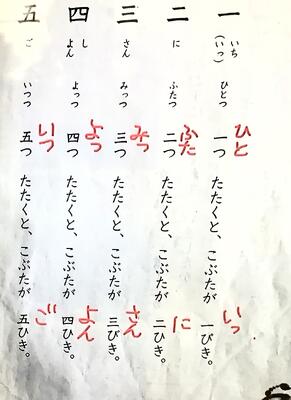 一 いち（いっ） ひとつ 一つ たたくと、こぶたが 一ぴき。
ひと いっ
二 に ふたつ 二つ たたくと、こぶたが 二ひき。
ふた に
三 さん みっつ 三つ たたくと、こぶたが 三びき。
みっ さん
四 し よん よっつ 四つ たたくと、こぶたが 四ひき。
よっ よん
五 ご いつつ 五つ たたくと、こぶたが 五ひき。
いつ ご